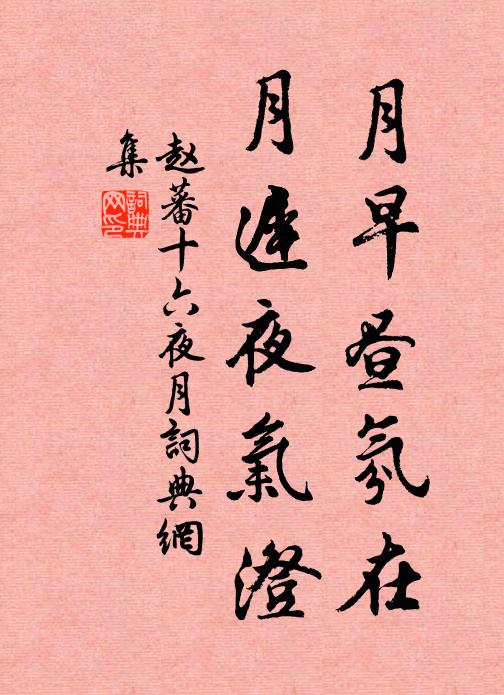 月早昼氛在
月遅夜氣澄
赵蕃十六夜月詞典網
集
詞典网印